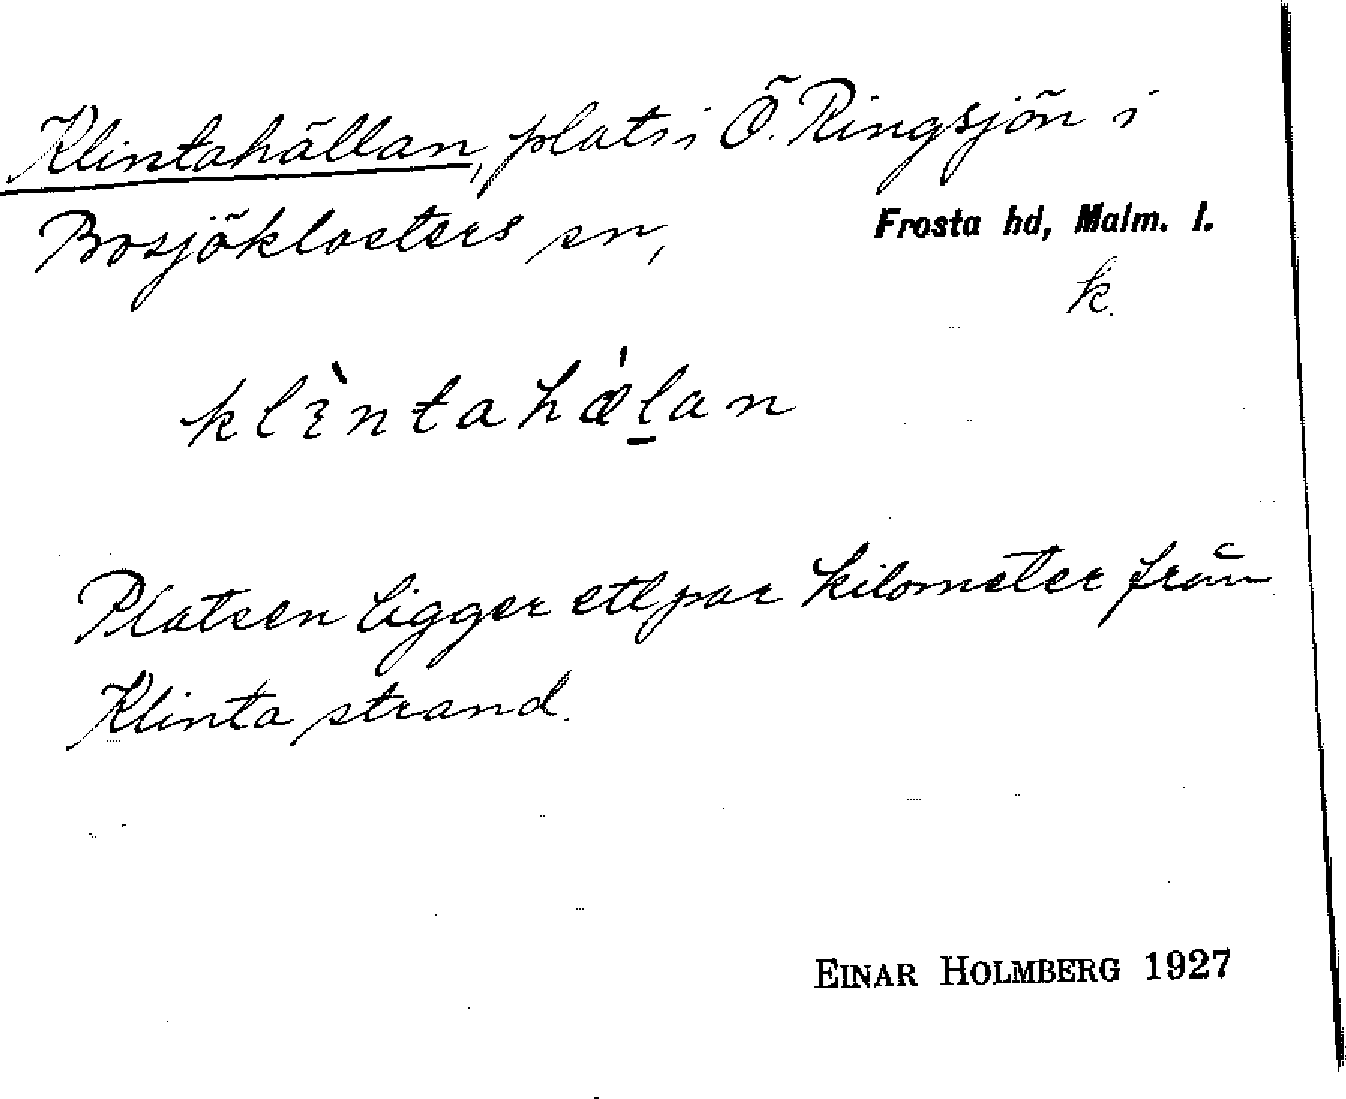 Klintahällan, plats i Ö. Ringsjön i
Bosjöklosters sn, Frosta hd, Malm. l.
k.
klìntahæ̀l̠an
Platsen ligger ett par kilometer från
Klinta strand.
EINAR HOLMBERG 1927